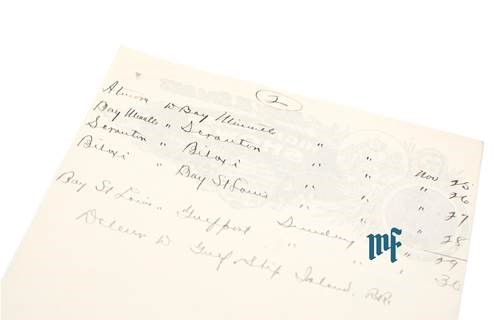 2
Atmore to Bay Minette " " Nov 25
Bay Minette " Scranton " " " 26
Scranton " Biloxi " " " 27
Biloxi " Bay St Louis " " " 28
Bay St Louis " Gulfport Sunday " " 29
" " 30
to Gulf & Ship Island RR.
mf